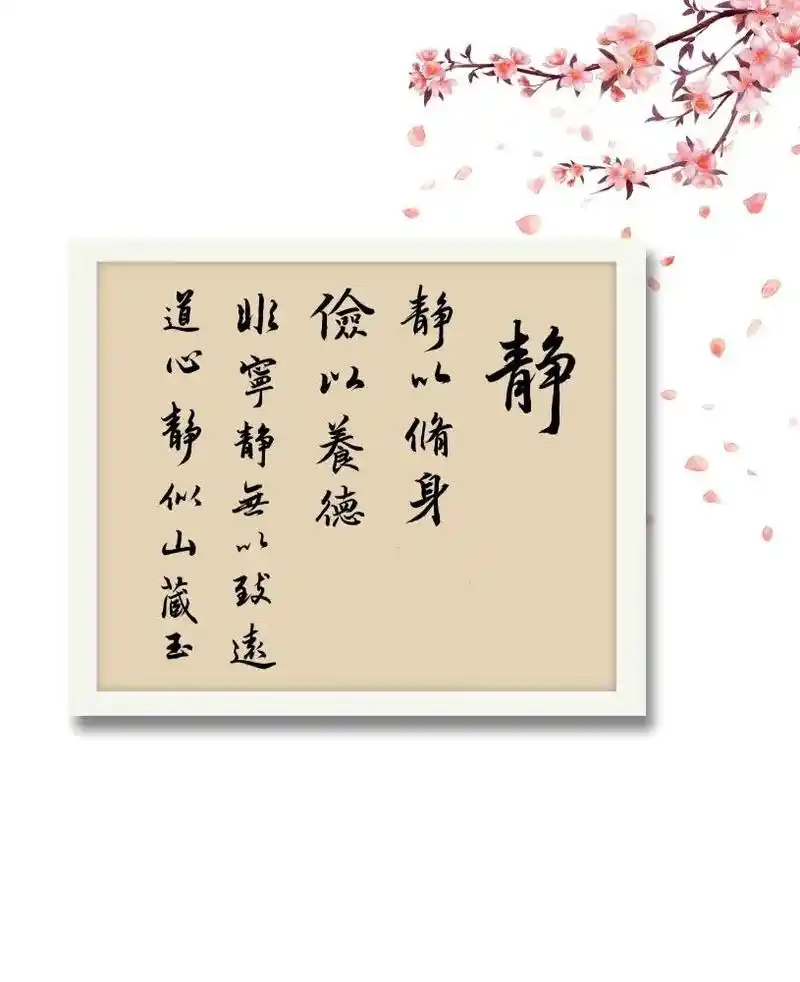 静
静以脩身
儉以養德
非寧静無以致遠
道心静似山藏玉